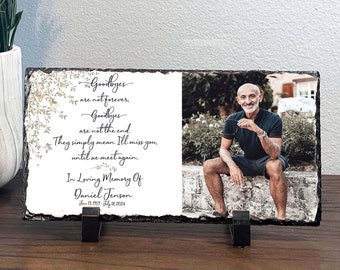 Goodbyes
are not forever,
Goodbyes
are not the end
They simply mean I'll miss you,
until we meet again.
In Loving Memory Of
Daniel Jenson